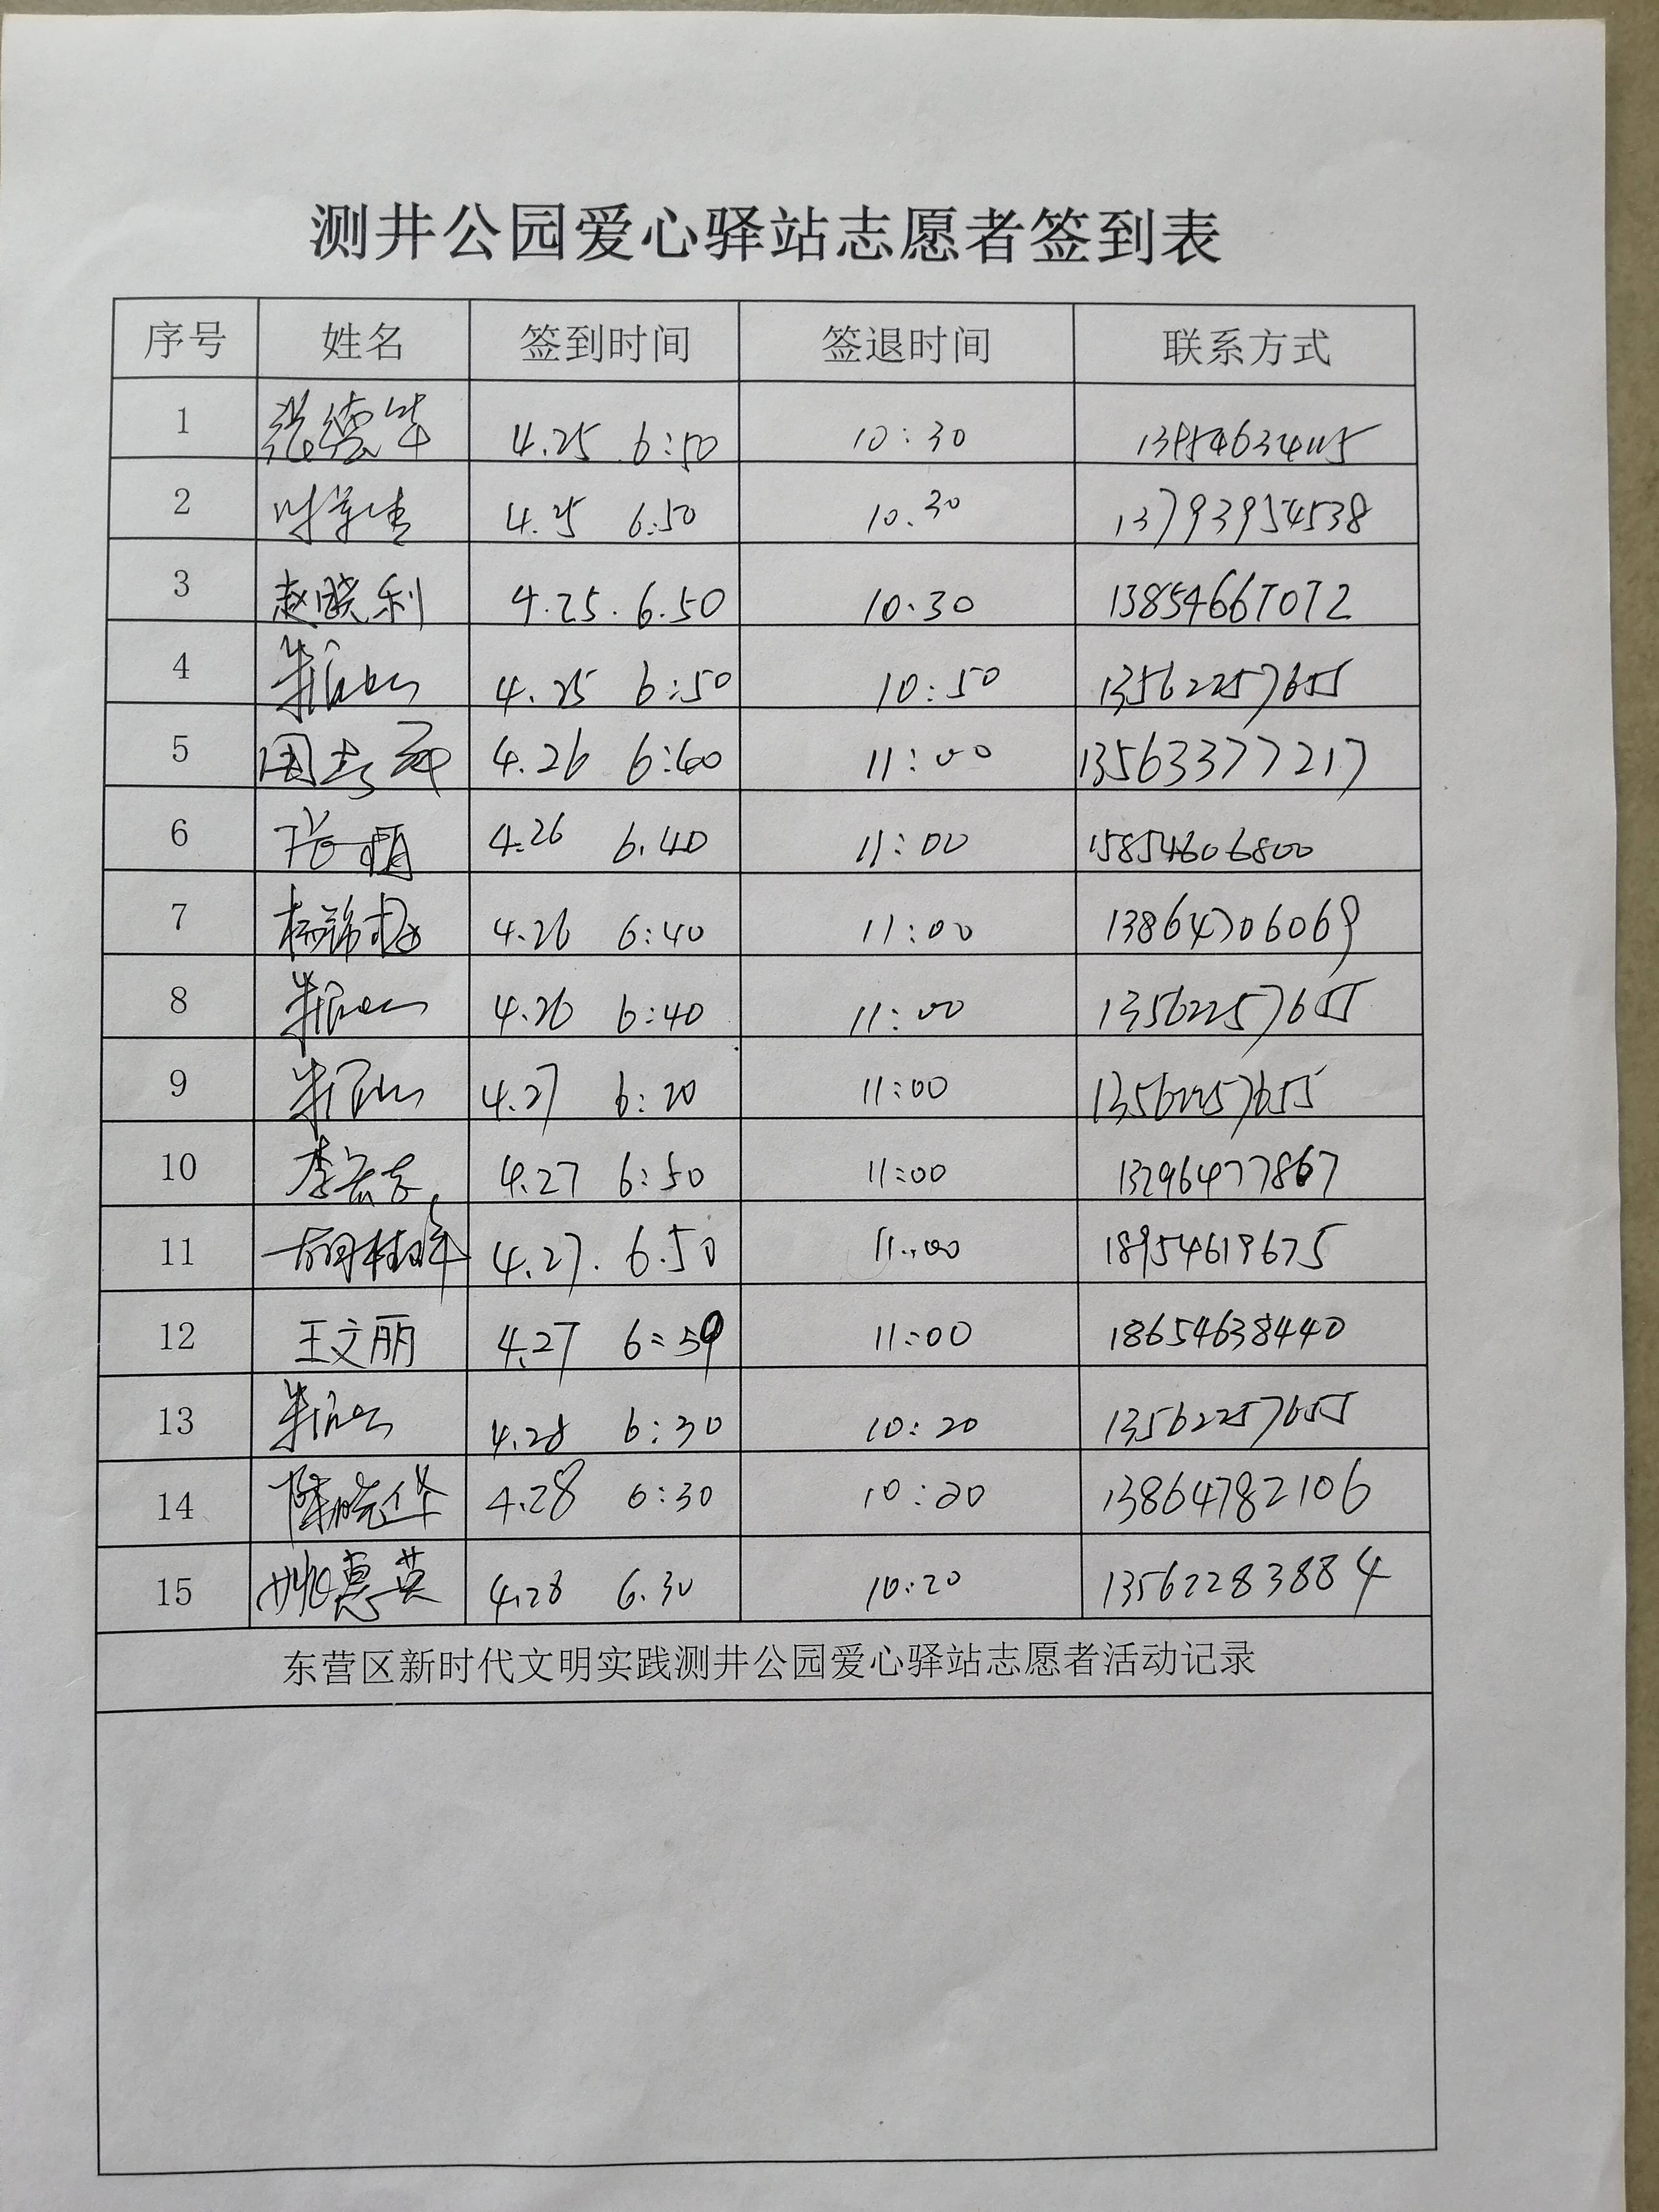 测井公园爱心驿站志愿者签到表
序号 姓名 签到时间 签退时间 联系方式
1 张德华 4.25 6:50 10:30
2 4.25 6:50 10.30 13793954538
3 赵晓利 4.25. 6.50 10.30 13854667072
4 4.25 6:50 10:50 13562257655
5 4.26 6:40 11:00 13563377217
6 4.26 6.40 11:00 15854606800
7 4.26 6:40 11:00 13864706069
8 4.26 6:40 11:00 13562257655
9 4.27 6:20 11:00 13562257655
10 4.27 6:50 11:00 13296477867
11 4.27. 6.50 11:00 18954619675
12 王文丽 4.27 6:50 11:00 18654638440
13 4.28 6:30 10:20 13562257655
14 陈晓华 4.28 6:30 10:20 13864782106
15 姚惠英 4.28 6.30 10:20 13562283884
东营区新时代文明实践测井公园爱心驿站志愿者活动记录